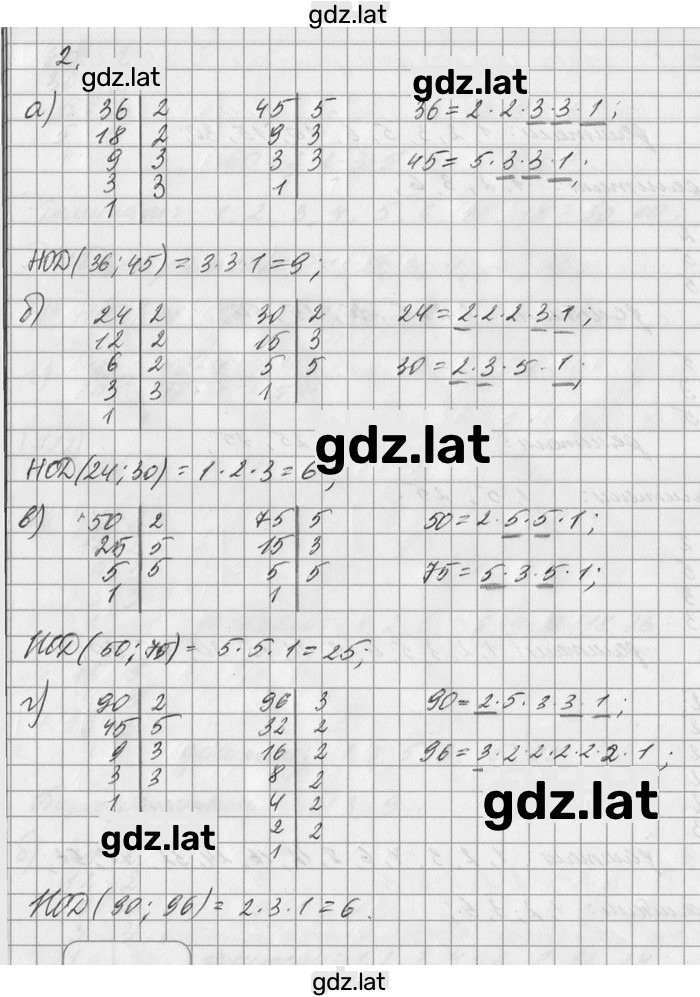 gdz.lat
2.
gdz.lat
gdz.lat
а) 36 | 2 45 | 5 36 = 2 · 2 · 3 · 3 · 1 ;
18 | 2 9 | 3
9 | 3 3 | 3 45 = 5 · 3 · 3 · 1 ;
3 | 3 1
1
НОД(36; 45) = 3 · 3 · 1 = 9 ;
б) 24 | 2 30 | 2 24 = 2 · 2 · 2 · 3 · 1 ;
12 | 2 15 | 3
6 | 2 5 | 5 30 = 2 · 3 · 5 · 1 ;
3 | 3 1
1
gdz.lat
НОД(24; 30) = 1 · 2 · 3 = 6 ;
в) 50 | 2 75 | 5 50 = 2 · 5 · 5 · 1 ;
25 | 5 15 | 3
5 | 5 5 | 5 75 = 5 · 3 · 5 · 1 ;
1 1
НОД(50; 75) = 5 · 5 · 1 = 25 ;
г) 90 | 2 96 | 3 90 = 2 · 5 · 3 · 3 · 1 ;
45 | 5 32 | 2
9 | 3 16 | 2 96 = 3 · 2 · 2 · 2 · 2 · 2 · 1 ;
3 | 3 8 | 2
1 4 | 2
2 | 2
1
gdz.lat
gdz.lat
НОД(90; 96) = 2 · 3 · 1 = 6 .
gdz.lat